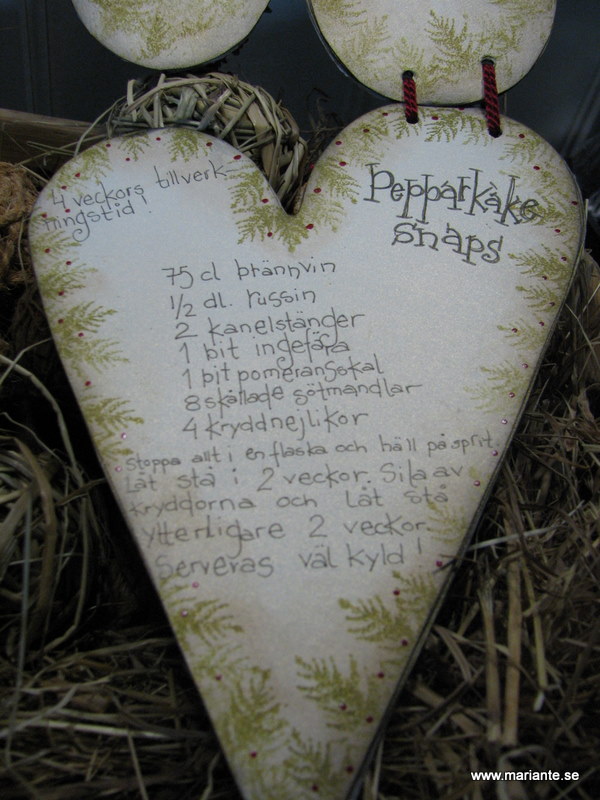 4 veckors tillverk-
ningstid!
Pepparkake
snaps
75 cl brännvin
1/2 dl. russin
2 kanelstänger
1 bit ingefära
1 bit pomeransskal
8 skållade sötmandlar
4 kryddnejlikor
Stoppa allt i en flaska och häll på sprit.
Låt stå i 2 veckor. Sila av
kryddorna och låt stå
ytterligare 2 veckor.
Serveras väl kyld!
www.mariante.se